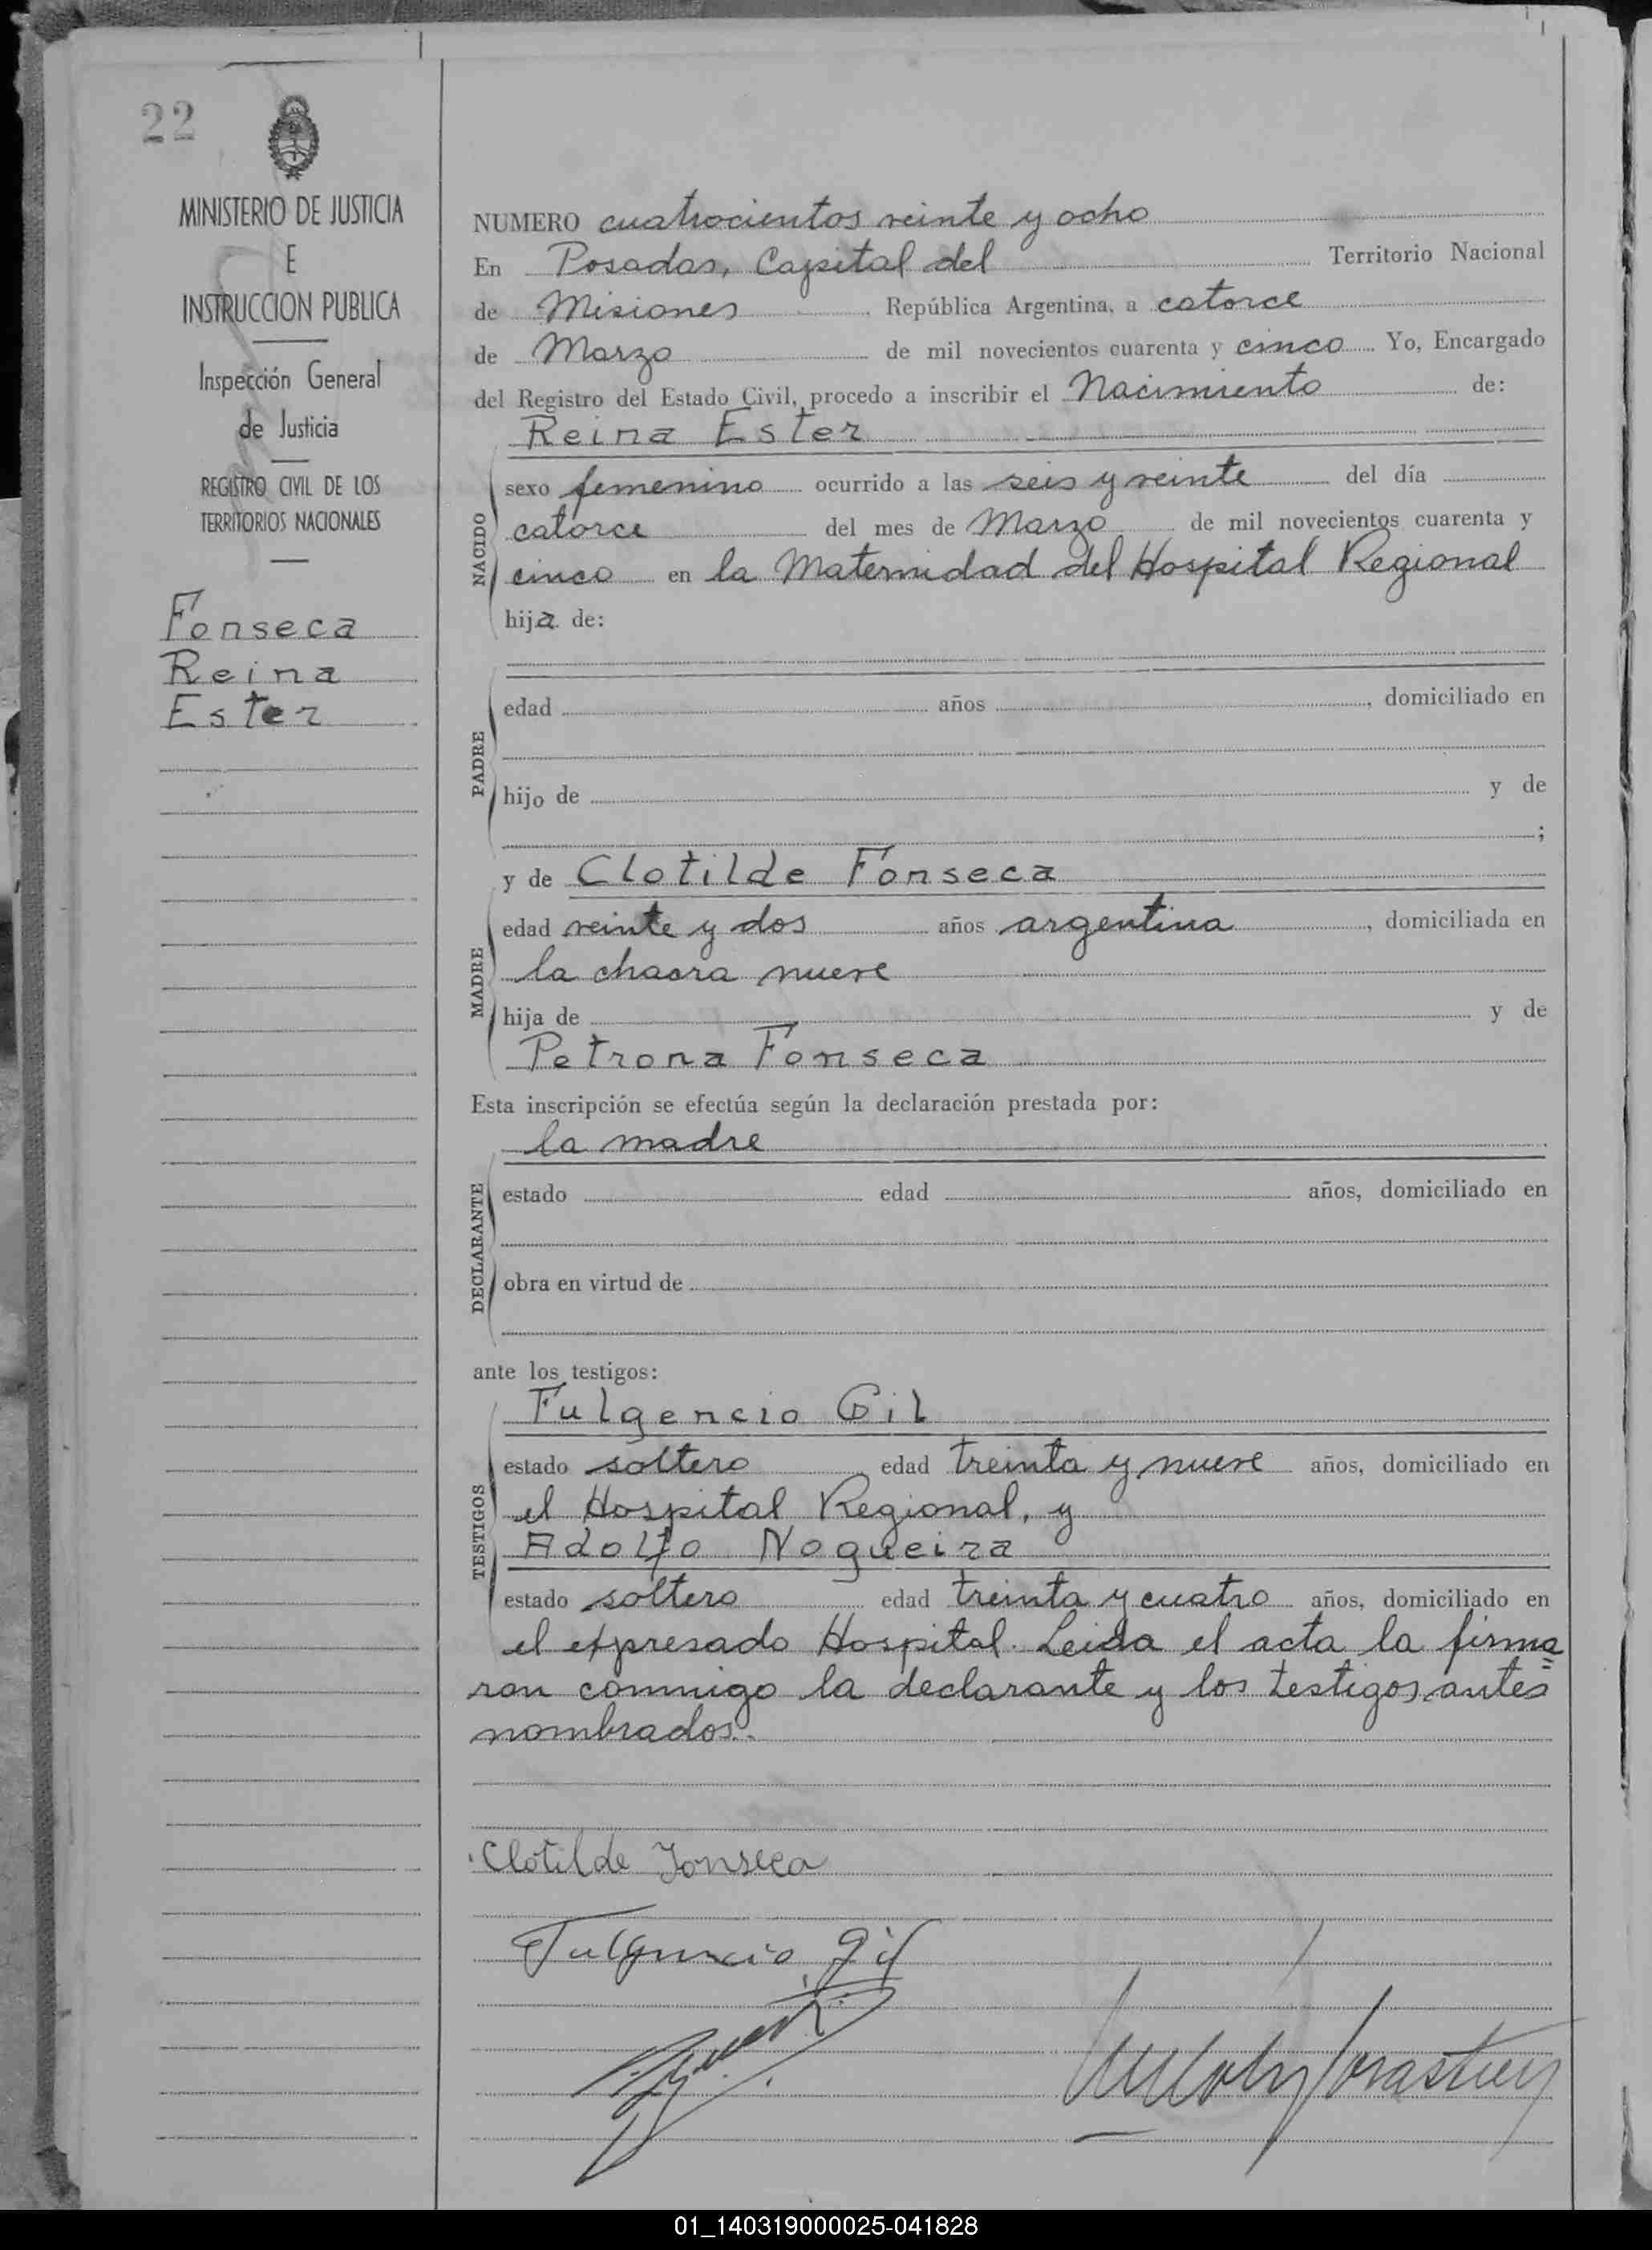 22
MINISTERIO DE JUSTICIA
E
INSTRUCCION PUBLICA
Inspección General
de Justicia
REGISTRO CIVIL DE LOS
TERRITORIOS NACIONALES
Fonseca
Reina
Ester
NUMERO cuatrocientos veinte y ocho
En Posadas, Capital del Territorio Nacional
de Misiones República Argentina, a catorce
de Marzo de mil novecientos cuarenta y cinco Yo, Encargado
del Registro del Estado Civil, procedo a inscribir el Nacimiento de:
Reina Ester
NACIDO
sexo femenino ocurrido a las seis y veinte del día
catorce del mes de Marzo de mil novecientos cuarenta y
cinco en la Maternidad del Hospital Regional
hija de:
PADRE
edad años , domiciliado en
hijo de y de
;
y de Clotilde Fonseca
MADRE
edad veinte y dos años argentina , domiciliada en
la chacra nueve
hija de y de
Petrona Fonseca
Esta inscripción se efectúa según la declaración prestada por:
la madre
DECLARANTE
estado edad años, domiciliado en
obra en virtud de
ante los testigos:
Fulgencio Gil
TESTIGOS
estado soltero edad treinta y nueve años, domiciliado en
el Hospital Regional, y
Adolfo Nogueira
estado soltero edad treinta y cuatro años, domiciliado en
el expresado Hospital. Leida el acta la firma=
ron conmigo la declarante y los testigos antes
nombrados.
Clotilde Fonseca
Fulgencio Gil
01_140319000025-041828